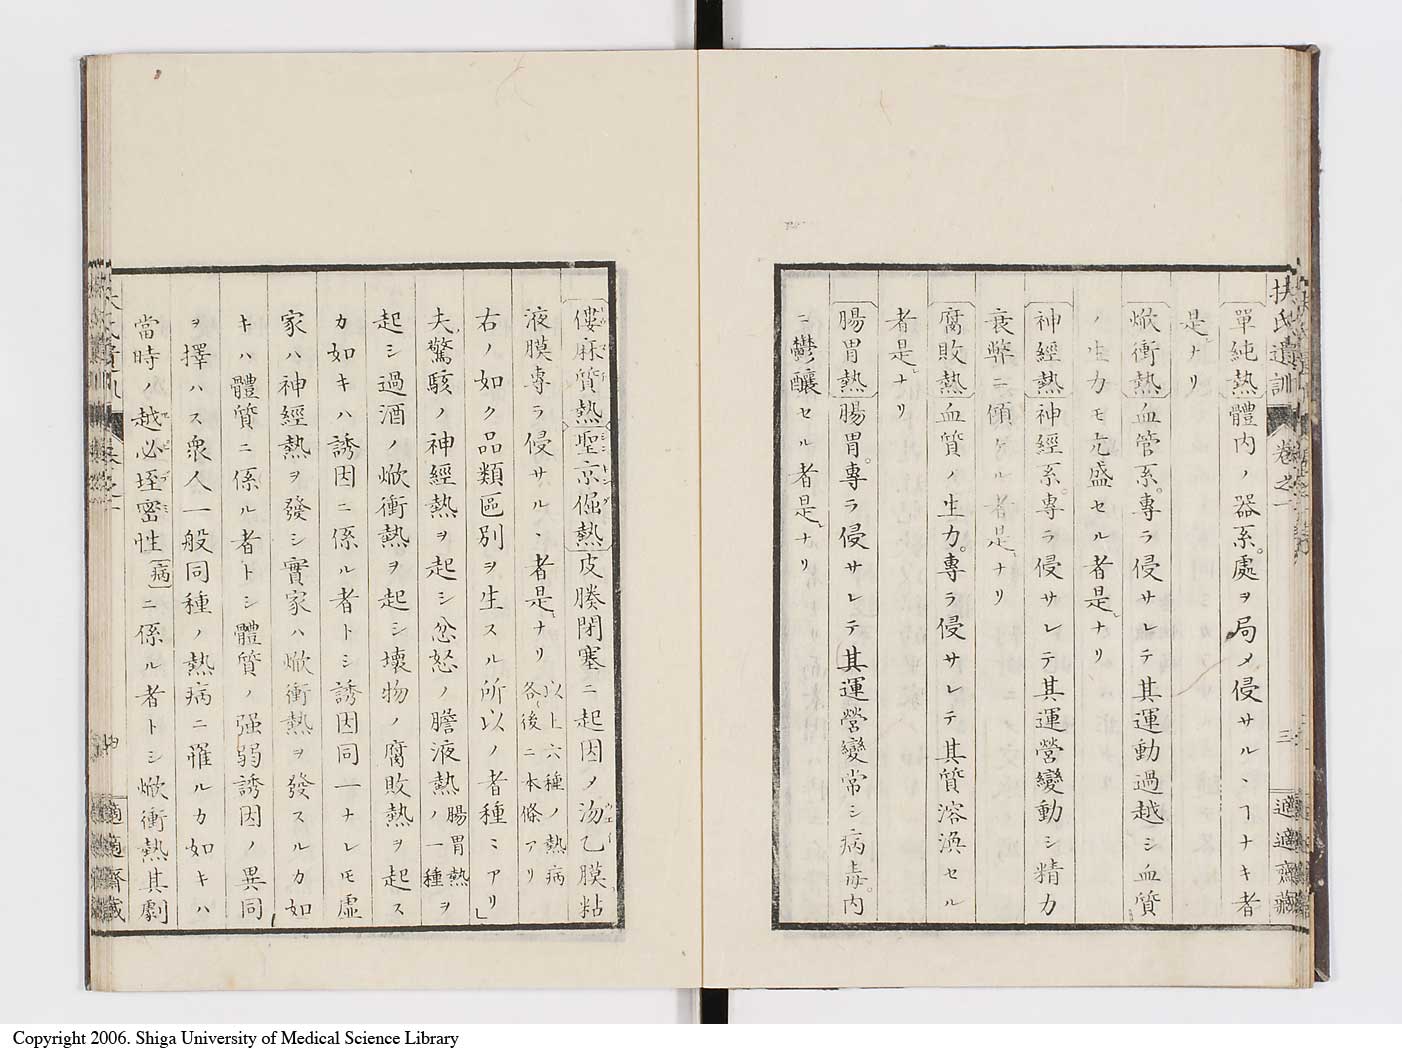 扶氏遺訓 卷之一 三 適適齋藏
單純熱體内ノ器系處ヲ局メ侵サルヽヿナキ者
是ナリ
焮衝熱血管系專ラ侵サレテ其運動過越シ血質
ノ生力モ亢盛セル者是ナリ
神經熱神經系專ラ侵サレテ其運營變動シ精力
衰弊ニ傾ケル者是ナリ
腐敗熱血質ノ生力專ラ侵サレテ其質溶渙セル
者是ナリ
腸胃熱腸胃專ラ侵サレテ其運營變常シ病毒内
ニ鬱釀セル者是ナリ
僂麻質熱聖京倔熱皮腠閉塞ニ起因ノ汤乙膜粘
液膜專ラ侵サルヽ者是ナリ以上六種ノ熱病
各後ニ本條アリ
右ノ如ク品類區別ヲ生スル所以ノ者種ミアリ
夫驚駭ノ神經熱ヲ起シ忿怒ノ膽液熱腸胃熱
ノ一種ヲ
起シ過酒ノ焮衝熱ヲ起シ壞物ノ腐敗熱ヲ起ス
カ如キハ誘因ニ係ル者トシ誘因同一ナレモ虚
家ハ神經熱ヲ發シ實家ハ焮衝熱ヲ發スルカ如
キハ體質ニ係ル者トシ體質ノ强弱誘因ノ異同
ヲ擇ハス衆人一般同種ノ熱病ニ罹ルカ如キハ
當時ノ越必垤密性病ニ係ル者トシ焮衝熱其劇
適適齋藏
Copyright 2006. Shiga University of Medical Science Library